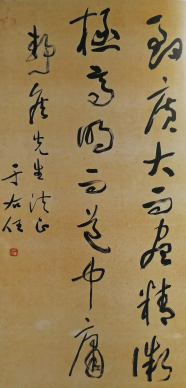 致廣大而盡精微
極高明而道中庸
先生法正
于右任